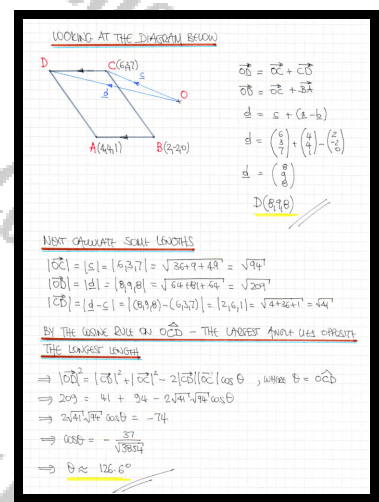 LOOKING AT THE DIAGRAM BELOW
D
C(6,3,7)
c
d
O
A(4,4,1)
B(2,-2,0)
OD = OC + CD
OD = OC + BA
d = c + (a - b)
d = (6 3 7) + (4 4 1) - (2 -2 0)
d = (8 9 8)
D(8,9,8)
NEXT CALCULATE SOME LENGTHS
|OC| = |c| = |6,3,7| = √36+9+49 = √94
|OD| = |d| = |8,9,8| = √64+81+64 = √209
|CD| = |d - c| = |(8,9,8) - (6,3,7)| = |2,6,1| = √4+36+1 = √41
BY THE COSINE RULE ON OĈD - THE LARGEST ANGLE LIES OPPOSITE
THE LONGEST LENGTH
⟹ |OD|² = |CD|² + |OC|² - 2|CD||OC| cos θ , WHERE θ = OĈD
⟹ 209 = 41 + 94 - 2√41 √94 cos θ
⟹ 2√41 √94 cos θ = -74
⟹ cos θ = - 37/√3854
⟹ θ ≈ 126.6°